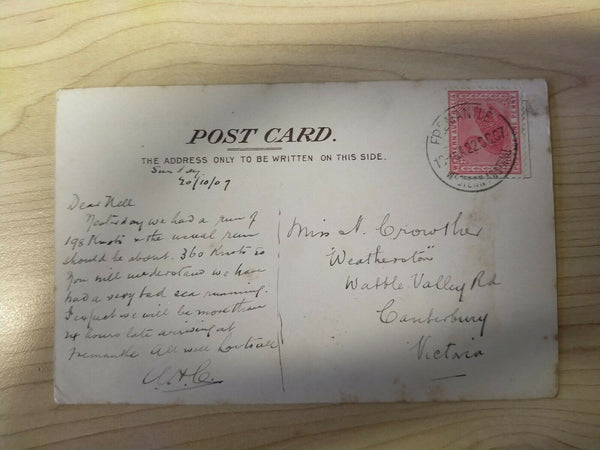 POST CARD.
THE ADDRESS ONLY TO BE WRITTEN ON THIS SIDE.
Sunday
20/10/07
Dear Nell
Yesterday we had a run of
198 Knots & the usual run
should be about 360 Knots so
You will understand we have
had a very bad sea running.
I expect we will be more than
24 hours late arriving at
Fremantle All well
Miss N. Crowther
"Weatherston"
Wattle Valley Rd
Canterbury
Victoria
FREMANTLE
WESTERN AUSTRALIA
ONE PENNY